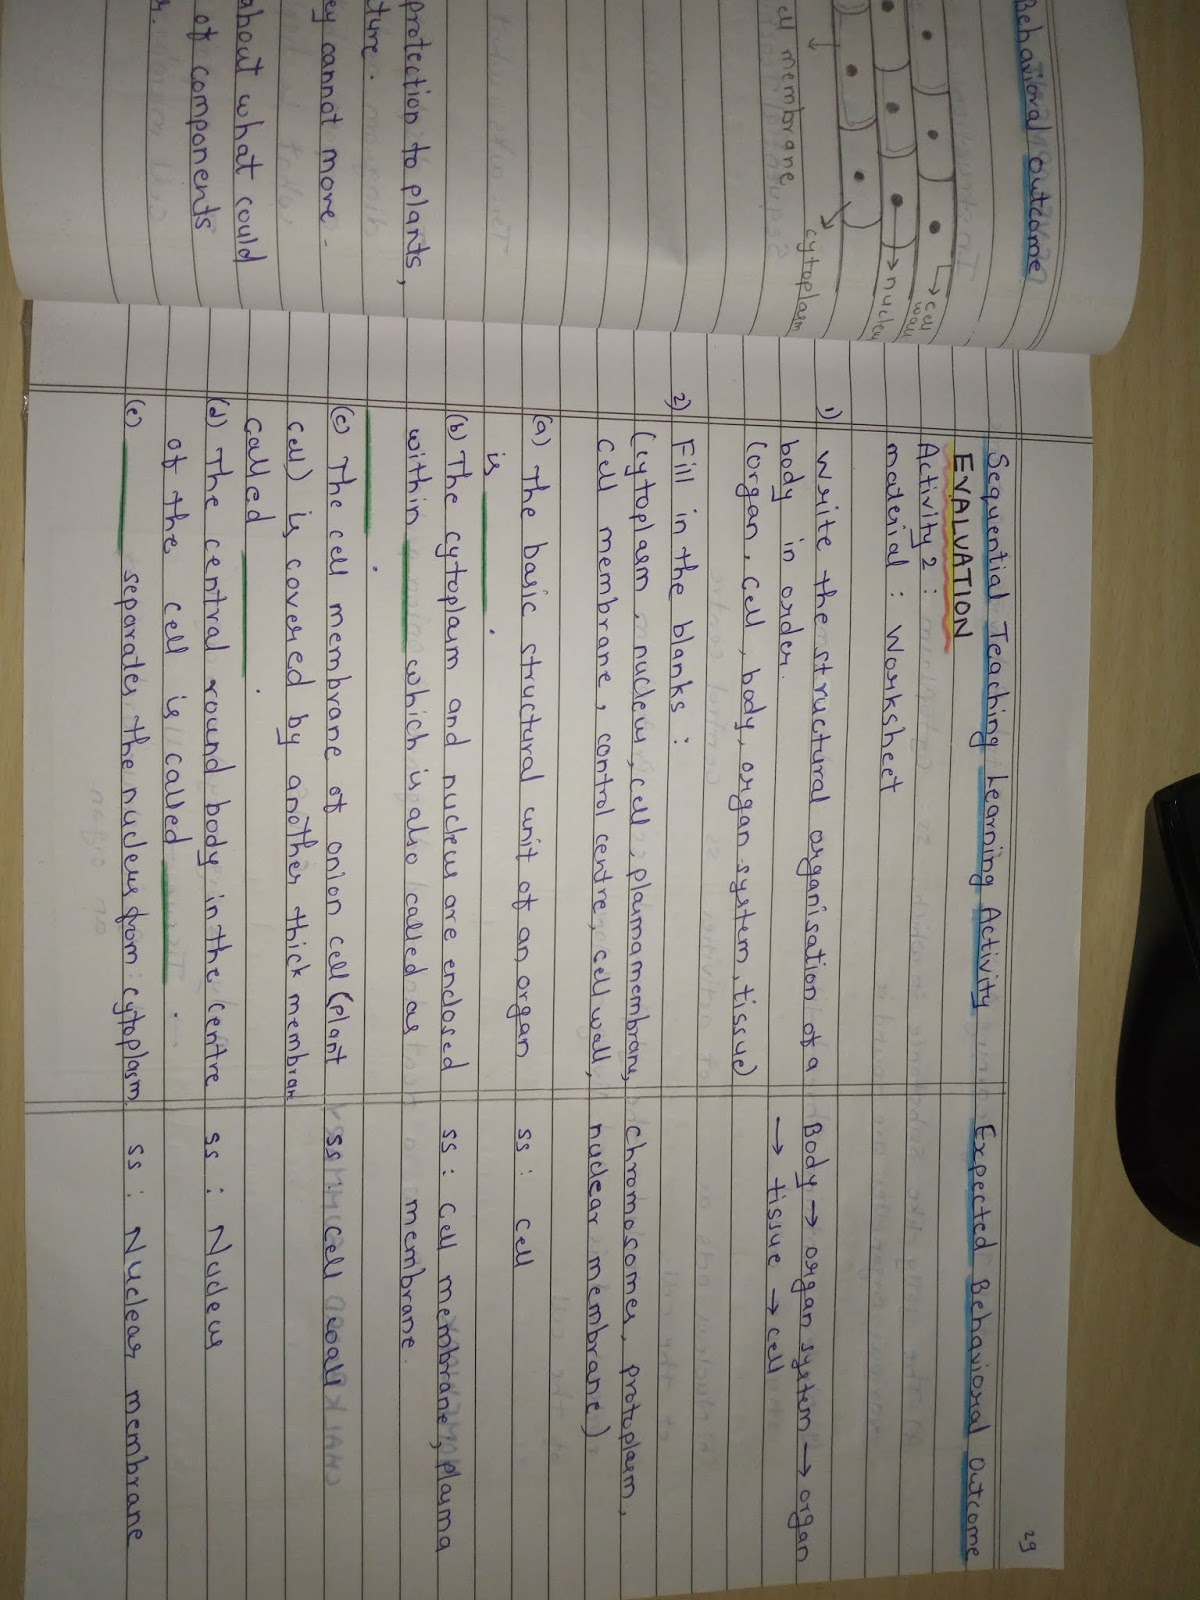 Behavioral outcome
cell wall
nucleus
cytoplasm
cell membrane
protection to plants,
ture.
ey cannot move.
about what could
of components
r.
29
Sequential Teaching Learning Activity Expected Behavioral Outcome
EVALUATION
Activity 2 :
material : Worksheet
1) Write the structural organisation of a Body → organ system → organ
body in order. → tissue → cell
(organ, cell, body, organ system, tissue)
2) Fill in the blanks :
(cytoplasm, nucleus, cell, plasma membrane, chromosomes, protoplasm,
cell membrane, control centre, cell wall, nuclear membrane)
(a) The basic structural unit of an organ ss : cell
is ____.
(b) The cytoplasm and nucleus are enclosed ss : cell membrane, plasma
within ____ which is also called as membrane.
____.
(c) The cell membrane of onion cell (plant ss : cell wall
cell) is covered by another thick membran
called ____.
(d) The central round body in the centre ss : Nucleus
of the cell is called ____.
(e) ____ separates the nucleus from cytoplasm. ss : Nuclear membrane